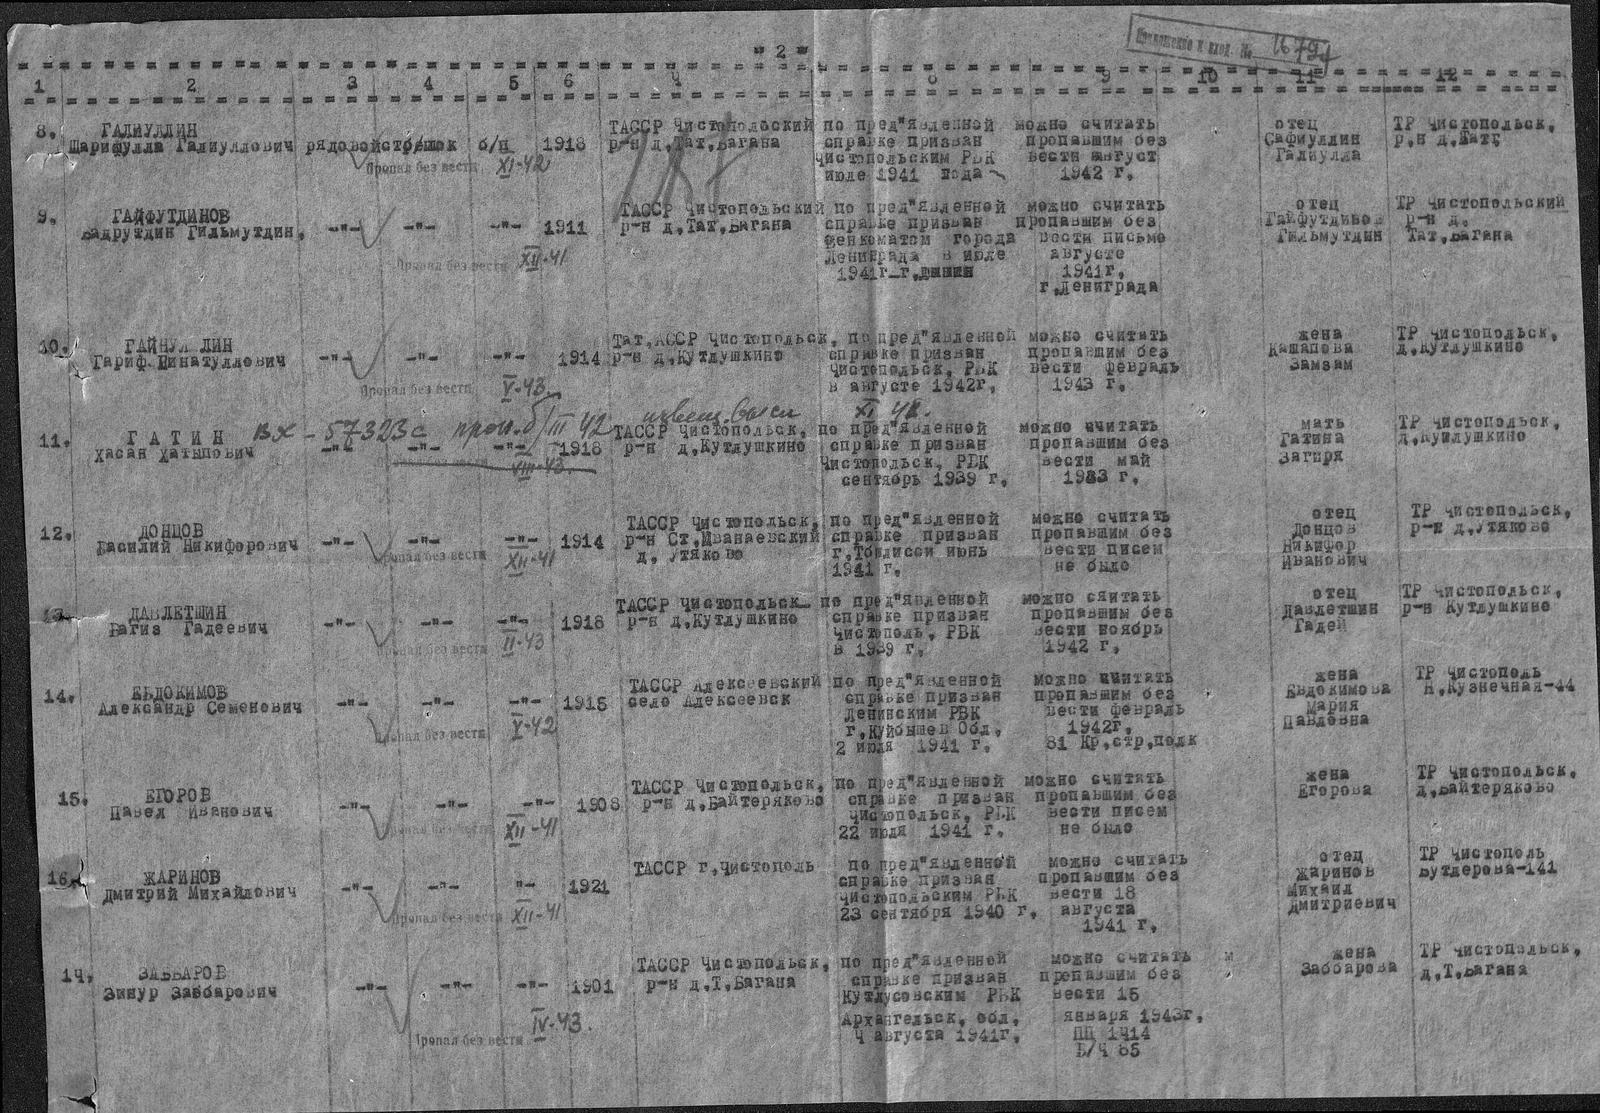 "2"
Приложение к вход. №
1 2 3 4 5 6 7 8 9 10 11 12
8. ГАЛИУЛЛИН Шарифулла Галиуллович рядовой стрелок б/п 1918
Пропал без вести XI-42
ТАССР Чистопольский
р-н д.Тат.Багана
по пред"явленной
справке призван
Чистопольским РВК
июле 1941 года
можно считать
пропавшим без
вести август
1942 г.
отец
Сафиуллин
Галиулла
ТР Чистопольск.
р.н д.
9. ГАЙФУТДИНОВ
Бадрутдин Гильмутдин. -"- -"- -"- 1911
Пропал без вести XII-41
ТАССР Чистопольский
р-н д.Тат.Багана
по пред"явленной
справке призван
Венкоматом города
Ленинграда в июле
1941г
можно считать
пропавшим без
вести письмо
августе
1941г.
г.Лениграда
отец
Гайфутдинов
Гильмутдин
ТР Чистопольский
р-н д.
Тат.Багана
10. ГАЙНУЛЛИН
Гариф -"- -"- -"- 1914
Пропал без вести V-43
Тат.АССР Чистопольск.
р-н д.Кутлушкино
по пред"явленной
справке призван
Чистопольск. РВК
в августе 1942г.
можно считать
пропавшим без
вести февраль
1943 г.
жена
Кашапова
Замзам
ТР Чистопольск.
д.Кутлушкино
вх - 57323с проп. б/ III 42 XI 42.
11. ГАТИН
Хасан Хатыпович -"- -"- -"- 1918
VIII-43.
ТАССР Чистопольск.
р-н д.Кутлушкино
по пред"явленной
справке призван
Чистопольск. РВК
сентябрь 1939 г.
можно считать
пропавшим без
вести май
мать
Гатина
Загиря
ТР Чистопольск.
12. ДОНЦОВ
Василий Никифорович -"- -"- -"- 1914
Пропал без вести XII-41
ТАССР Чистопольск.
р-н Ст.Иванаевский
д. Утяково
по пред"явленной
справке призван
г.Тбилисси июнь
1941 г.
можно считать
пропавшим без
вести писем
не было
отец
Донцов
Никифор
Иванович
ТР Чистопольск.
р-н д.Утяково
13. ДАВЛЕТШИН
Вагиз Гадеевич -"- -"- -"- 1918
Пропал без вести II-43
ТАССР Чистопольск
р-н д.Кутлушкино
по пред"явленной
справке призван
Чистополь. РВК
в 1939 г.
можно считать
пропавшим без
вести ноябрь
1942 г.
отец
Давлетшин
Гадей
ТР Чистопольск.
р-н Кутлушкино
14. ЕВДОКИМОВ
Александр Семенович -"- -"- -"- 1915
Пропал без вести X-42
ТАССР Алексеевский
село Алексеевск
по пред"явленной
справке призван
Ленинским РВК
г.Куйбышев Обл.
2 июля 1941 г.
можно считать
пропавшим без
вести февраль
1942г.
81 Кр.стр.полк
жена
Евдокимова
Мария
Павловна
ТР Чистополь
Н.Кузнечная-44
15. ЕГОРОВ
Павел Иванович -"- -"- -"- 1908
Пропал без вести XII-41
ТАССР Чистопольск.
р-н д.Байтеряково
по пред"явленной
справке призван
Чистопольск. РВК
22 июля 1941 г.
можно считать
пропавшим без
вести писем
не было
жена
Егорова
ТР Чистопольск.
д.Байтеряково
16. ЖАРИНОВ
Дмитрий Михайлович -"- -"- "- 1921
Пропал без вести XII-41
ТАССР г.Чистополь
по пред"явленной
справке призван
Чистопольским РВК
23 сентября 1940 г.
можно считать
пропавшим без
вести 18
августа
1941 г.
отец
Жаринов
Михаил
Дмитриевич
ТР Чистополь
Бутлерова-141
17. ЗАББАРОВ
Зинур Заббарович -"- -"- -"- 1901
Пропал без вести IV-43.
ТАССР Чистопольск.
р-н д.Т.Багана
по пред"явленной
справке призван
Кутлусовским РВК
Архангельск. обл.
4 августа 1941г.
можно считать
пропавшим без
вести 15
января 1943г.
ПП 1414
В/Ч 85
жена
Заббарова
ТР Чистопольск.
д.Т.Багана